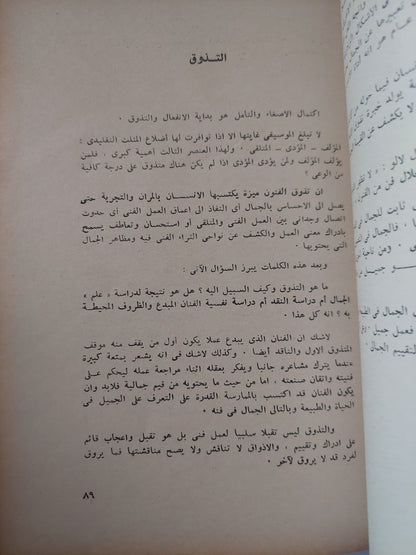 التـذوق
اكتمال الاصغاء والتأمل هو بداية الانفعال والتذوق .
لا تبلغ الموسيقى غايتها الا اذا توافرت لها أضلاع المثلث التقليدى :
المؤلف - المؤدى - المتلقى . ولهذا العنصر الثالث أهمية كبرى . فلمن
يؤلف المؤلف ولمن يؤدى المؤدى اذا لم يكن هناك متذوق على درجة كافية
من الوعى ؟
ان تذوق الفنون ميزة يكتسبها الانســان بالمران والتجربة حتى
يصل الى الاحساس بالجمال أى النفاذ الى أعماق العمل الفنى أى حدوث
اتصال وجدانى بين العمل الفنى والمتلقى أو استحسان وتعاطف يسمح
بادراك معنى العمل والكشف عن نواحى الثراء الفنى فيه ومظاهر الجمال
التى يحتويها .
وبعد هذه الكلمات يبرز السؤال الآتى :
ما هو التذوق وكيف السبيل اليه ؟ هل هو نتيجة لدراسة « علم »
الجمال أم دراسة النقد أم دراسة نفسية الفنان المبدع والظروف المحيطة
به ؟ انه كل هذا .
لاشك ان الفنان الذى يبدع عملا يكون أول من يقف منه موقف
المتذوق الأول والناقد أيضا . وكذلك لاشك فى انه يشعر بمتعة كبيرة
عندما يترك مشاعره جانبا ويفكر بعقله أثناء مراجعة عمله ليحكم على
فنيته واتقان صنعته . اما من حيث ما يحتويه من قيم جمالية فلابد وان
يكون الفنان قد اكتسب بالممارسة القدرة على التعرف على الجميل فى
الحياة والطبيعة وبالتالى الجمال فى فنه .
والتذوق ليس تقبلا سلبيا لعمل فنى بل هو تقبل واعجاب قائم
على ادراك وتقييم ، والاذواق لا تناقش ولا يصح مناقشتها فما يروق
لفرد قد لا يروق لآخر .
٨٩